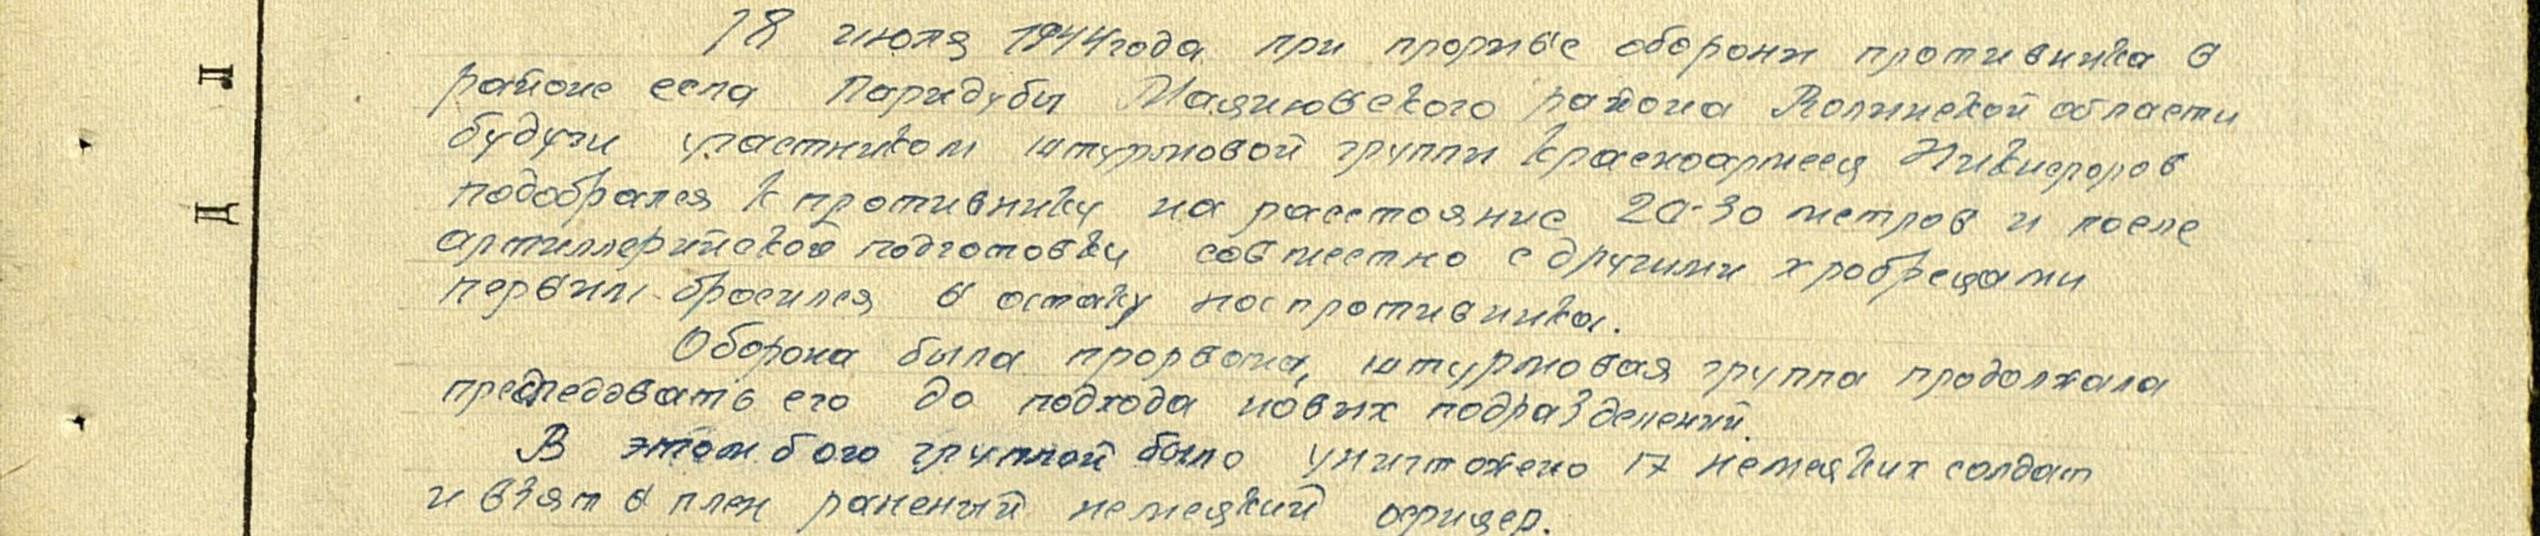 18 июля 1944 года при прорыве обороны противника в
районе села Паридубы Мацеювского района Волынской области
будучи участником штурмовой группы красноармеец Никифоров
подобрался к противнику на расстояние 20-30 метров и после
артиллерийской подготовки совместно с другими храбрецами
первым бросился в отаку на противника.
Оборона была прорвана, штурмовая группа продолжала
преследовать его до подхода новых подразделений.
В этом бою группой было уничтожено 17 немецких солдат
и взят в плен раненый немецкий офицер.